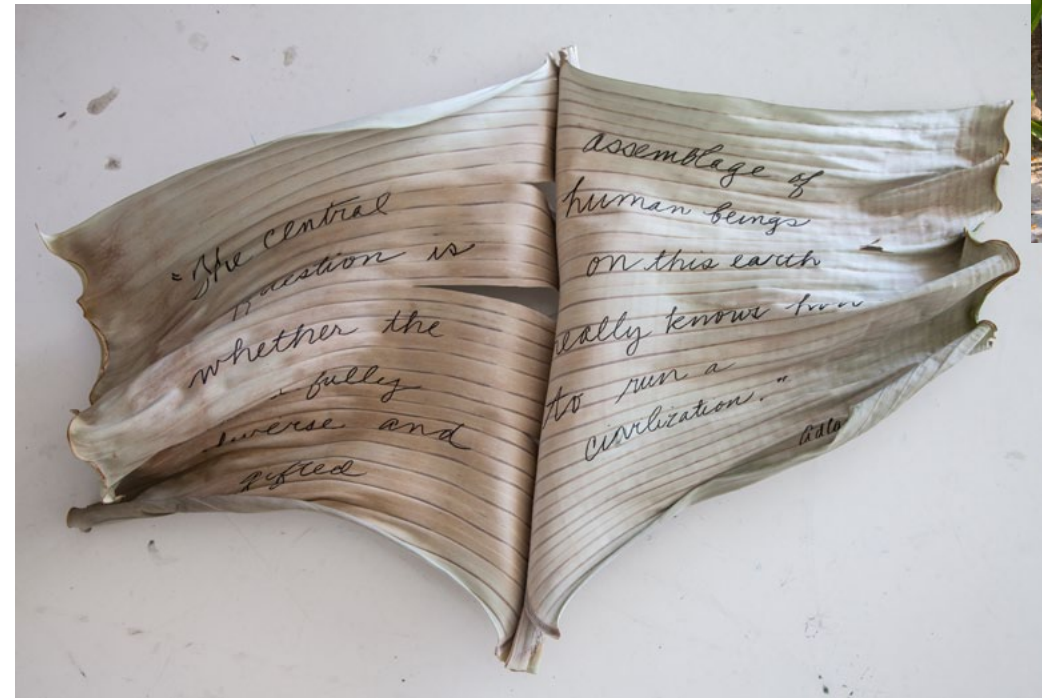 "The central
question is
whether the
fully
diverse and
gifted
assemblage of
human beings
on this earth
really knows how
to run a
civilization."